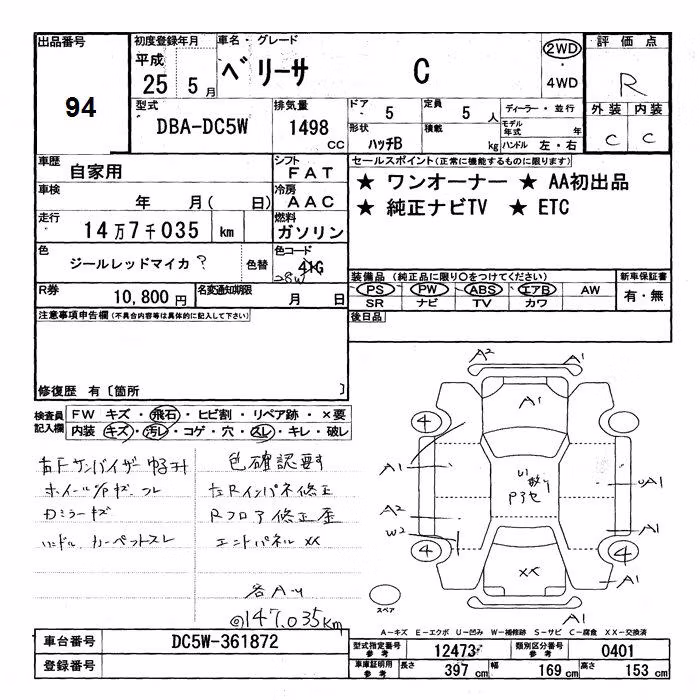 出品番号
94
初度登録年月
平成
25 5月
車名・グレード
ベリーサ C
2WD
・
4WD
評価点
R
型式
DBA-DC5W
排気量
1498
CC
ドア
5
定員
5人
形状
ハッチB
積載
kg
ディーラー・並行
モデル年式 年
ハンドル 左・右
外装 内装
C C
車歴
自家用
シフト
FAT
車検
年 月( 日)
冷房
AAC
走行
14万7千035 km
燃料
ガソリン
色
ジールレッドマイカ ?
色替
色コード
41G
28W
R券
10,800円
名変通知期限
月 日
セールスポイント(正常に機能するものに限ります)
★ ワンオーナー ★ AA初出品
★ 純正ナビTV ★ ETC
装備品 (純正品に限り○をつけてください)
PS PW ABS エアB AW
SR ナビ TV カワ
新車保証書
有・無
後日品
注意事項申告欄(不具合内容等は具体的に記入して下さい)
修復歴 有〔箇所 〕
検査員記入欄
FW キズ・飛石・ヒビ割・リペア跡・×要
内装 キズ・汚レ・コゲ・穴・スレ・キレ・破レ
色確認要す
ホイールキズ
左Rインパネ修正
Dミラーキズ
Rフロア修正歪
ハンドル カーペットスレ
エンドパネル XX
各Aッ
@147,035km
A2 A1
A1
4
A1
UA1
A2
A1
W2
4 4
XX
A1
A1
スペア
A-キズ E-エクボ U-凹み W-補修跡 S-サビ C-腐食 XX-交換済
車台番号
DC5W-361872
登録番号
型式指定番号 参考
12473
類別区分番号 参考
0401
車庫証明用 参考
長さ 397 cm 幅 169 cm 高さ 153 cm